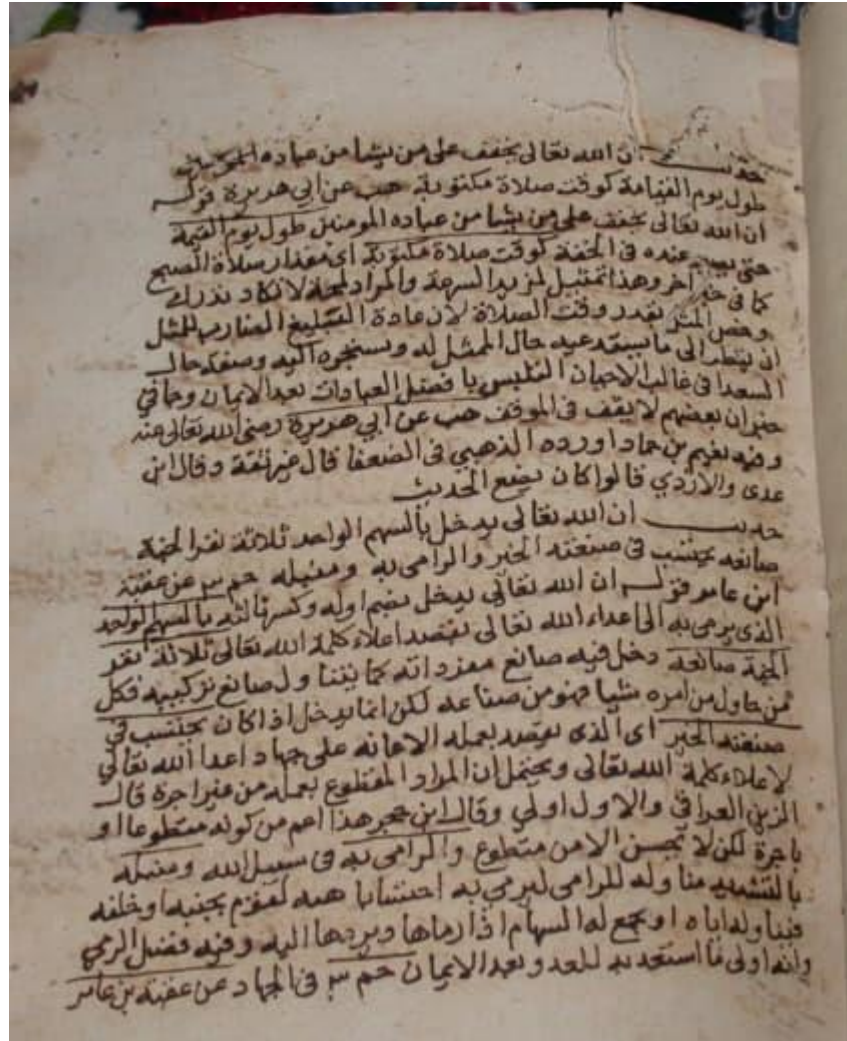 حديث ان الله تعالى يخفف على من يشا من عباده المومنين
طول يوم القيامة كوقت صلاة مكتوبة هب عن ابي هريرة قوله
ان الله تعالى يخفف على من يشا من عباده المومنين طول يوم القيمة
حتى يصير عنده في الخفة كوقت صلاة مكتوبة اى مقدار سلاة الصبح
كما في خبر اخر وهذا تمثيل لمزيد السرعة والمراد لمحة لا تكاد تدرك
وخص المثل بقدر وقت الصلاة لان عادة البليغ الضارب للمثل
ان ينظر الى ما يستدعيه حال الممثل له ويستجره اليه وصفة حال
السعدا في غالب الاحيان التلبس بافضل العبادات بعد الايمان وجا في
خبر ان بعضهم لا يقف في الموقف هب عن ابي هريرة رضى الله تعالى عنه
وفيه نعيم بن حماد اورده الذهبي في الضعفا قال غير ثقة وقال ابن
عدى والازدي قالوا كان يضع الحديث
حديث ان الله تعالى يدخل بالسهم الواحد ثلاثة نفر الجنة
صانعه يحتسب في صنعته الخير والرامى به ومنبله حم ٣ عن عقبة
ابن عامر قوله ان الله تعالي يدخل بضم اوله وكسر ثالثه بالسهم الواحد
الذى يرمى به الى اعداء الله تعالى بقصد اعلاء كلمة الله تعالى ثلاثة نفر
الجنة صانعه دخل فيه صانع مفرداته كما يتناول صانع تركيبه فكل
من حاول من امره شيا فهو من صناعه لكن انما يدخل اذا كان يحتسب في
صنعته الخير اى الذى يقصد بعمله الاعانه على جهاد اعدا الله تعالي
لاعلاء كلمة الله تعالى ويحتمل ان المراد المتطوع بعمله من غير اجرة قاله
الزين العراقي والاول اولي وقال ابن حجر هذا اعم من كونه متطوعا او
باجرة لكن لا تحسن الا من متطوع والرامى به في سبيل الله ومنبله
بالتشديد مناوله للرامى ليرمي به احتسابا منه كقوم بجنبه او خلفه
فيناوله اياه او يجمع له السهام اذا رماها ويردها اليه وفيه فضل الرمي
وانه اولى ما استعد به للعدو بعد الايمان حم ٣ في الجهاد عن عقبة بن عامر